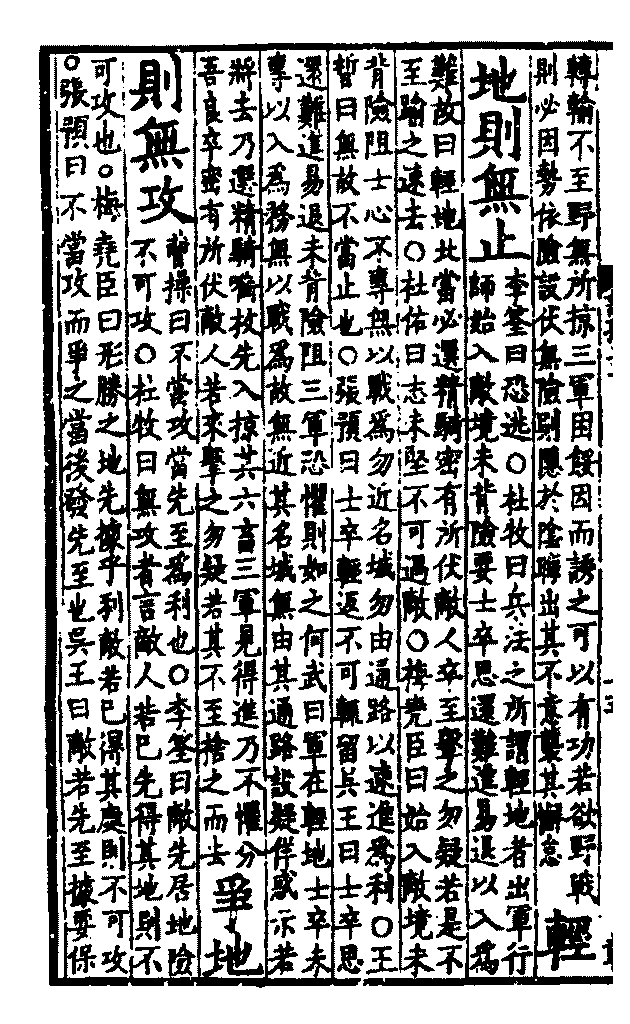 轉輸不至野無所掠三軍困餒因而誘之可以有功若欲野戰
則必因勢依險設伏無險則隱於陰晦出其不意襲其懈怠
輕
地則無止
李筌曰恐逃○杜牧曰兵法之所謂輕地者出軍行
師始入敵境未背險要士卒思還難進易退以入為
難故曰輕地也當必選精騎密有所伏敵人卒至擊之勿疑若是不
至踰之速去○杜佑曰志未堅不可遇敵○梅堯臣曰始入敵境未
背險阻士心不專無以戰為勿近名城勿由通路以速進為利○王
晳曰無故不當止也○張預曰士卒輕返不可輒留吳王曰士卒思
還難進易退未背險阻三軍恐懼則如之何武曰軍在輕地士卒未
專以入為務無以戰為故無近其名城無由其通路設疑佯惑示若
將去乃選精騎銜枚先入掠其六畜三軍見得進乃不懼分
吾良卒密有所伏敵人若來擊之勿疑若其不至捨之而去
爭地
則無攻
曹操曰不當攻當先至為利也○李筌曰敵先居地險
不可攻○杜牧曰無攻者言敵人若已先得其地則不
可攻也○梅堯臣曰形勝之地先據乎利敵若已得其處則不可攻
○張預曰不當攻而爭之當後發先至也吳王曰敵若先至據要保